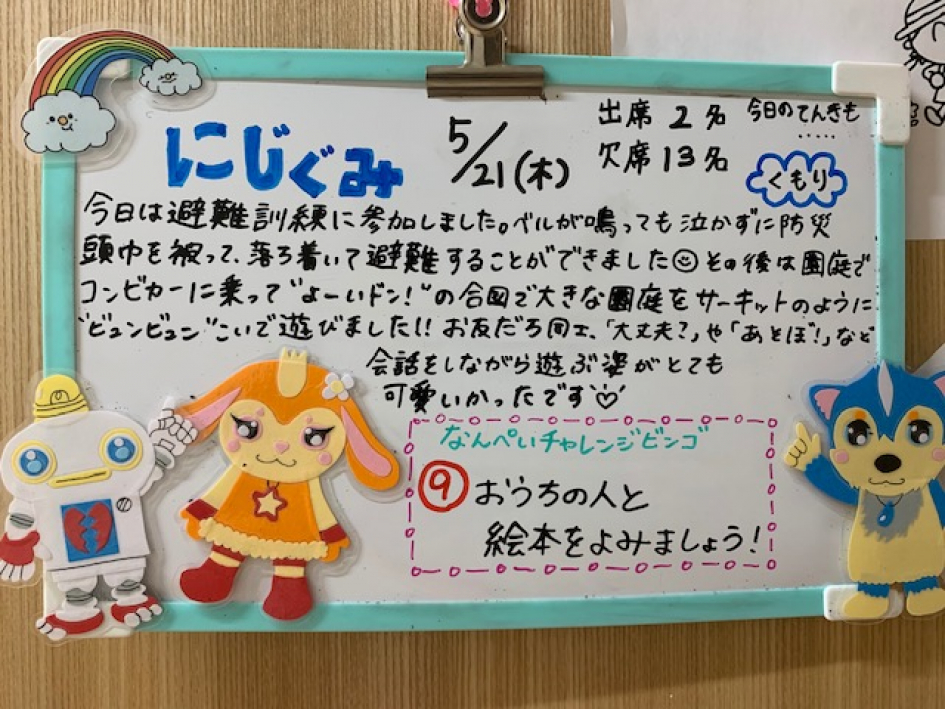 にじぐみ
5/21(木)
出席 2名
欠席 13名
今日のてんきも
.....
くもり
今日は避難訓練に参加しました。ベルが鳴っても泣かずに防災
頭巾を被って、落ち着いて避難することができました☺その後は園庭で
コンビカーに乗って"よーいドン!"の合図で大きな園庭をサーキットのように
"ビュンビュン"こいで遊びました!!お友だち同士、「大丈夫?」や「あそぼ!」など
会話をしながら遊ぶ姿がとても
可愛いかったです♡
なんぺいチャレンジビンゴ
⑨おうちの人と
絵本をよみましょう!